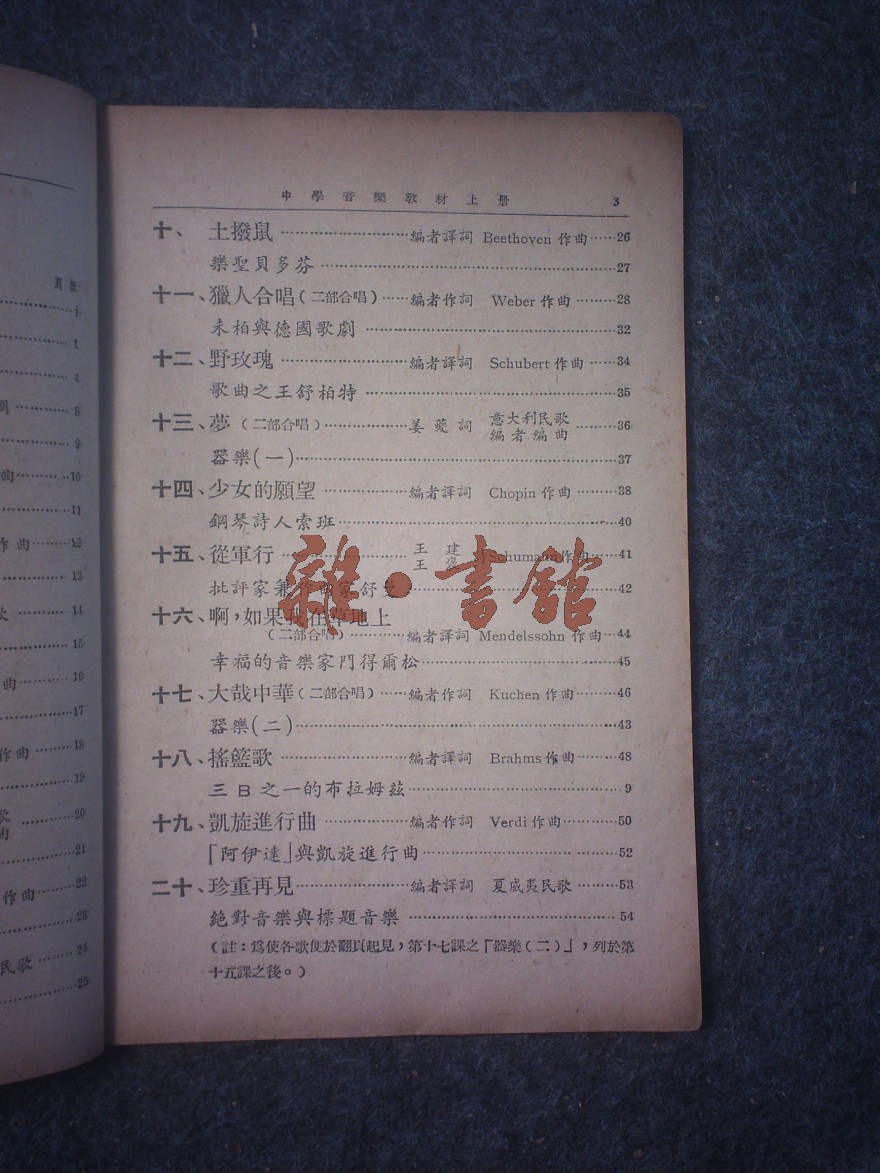 中學音樂教材上册 3
十、 土撥鼠 編者譯詞 Beethoven 作曲 26
樂聖貝多芬 27
十一、獵人合唱(二部合唱) 編者作詞 Weber 作曲 28
未柏與德國歌劇 32
十二、野玫瑰 編者譯詞 Schubert 作曲 34
歌曲之王舒柏特 35
十三、夢(二部合唱) 姜夔詞 意大利民歌 編者編曲 36
器樂(一) 37
十四、少女的願望 編者譯詞 Chopin 作曲 38
鋼琴詩人索班 40
十五、從軍行 王建 王 Schumann 作曲 41
批評家兼作曲家舒曼 42
十六、啊,如果我在草地上
(二部合唱) 編者譯詞 Mendelssohn 作曲 44
幸福的音樂家門得爾松 45
十七、大哉中華(二部合唱) 編者作詞 Kuchen 作曲 46
器樂(二) 43
十八、搖籃歌 編者譯詞 Brahms 作曲 48
三B之一的布拉姆茲 9
十九、凱旋進行曲 編者作詞 Verdi 作曲 50
「阿伊達」與凱旋進行曲 52
二十、珍重再見 編者譯詞 夏威夷民歌 53
絕對音樂與標題音樂 54
(註:爲使各歌便於翻頁起見,第十七課之「器樂(二)」,列於第
十五課之後。)
雜·書館
頁數
i
1
4
8
9
曲 10
11
作曲 12
13
14
15
曲 16
17
作曲 18
19
20
21
作曲 22
23
24
民歌
25